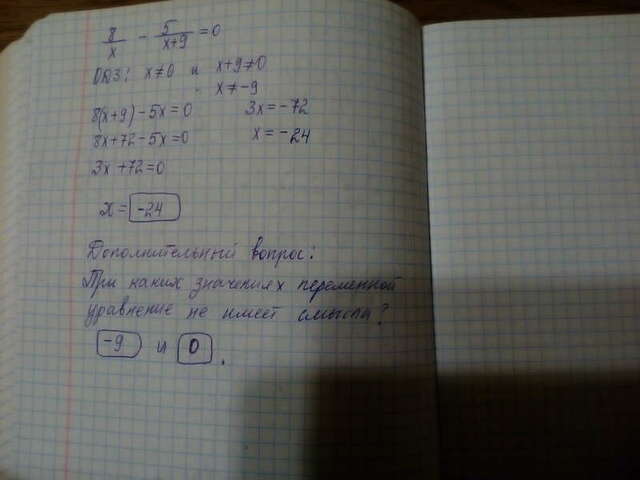 8/x - 5/x+9 = 0
ОДЗ: x≠0 и x+9≠0
x≠-9
8(x+9)-5x=0
3x=-72
8x+72-5x=0
x=-24
3x+72=0
x= -24
Дополнительный вопрос:
При каких значениях переменной
уравнение не имеет смысла?
-9 и 0.